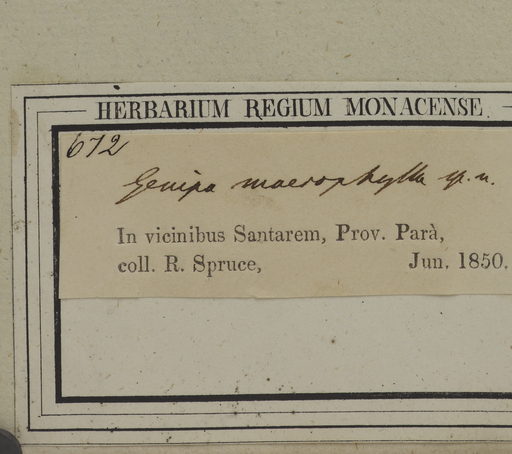 HERBARIUM REGIUM MONACENSE.
672
Genipa macrophylla sp. n.
In vicinibus Santarem, Prov. Parà,
coll. R. Spruce, Jun. 1850.